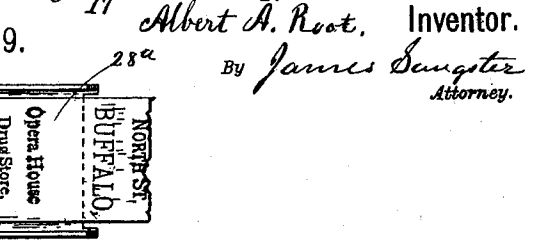 17
Albert A. Root, Inventor.
9.
28a
By James Sangster
Attorney.
NORTH ST,
BUFFALO,
Opera House
Drug Store,